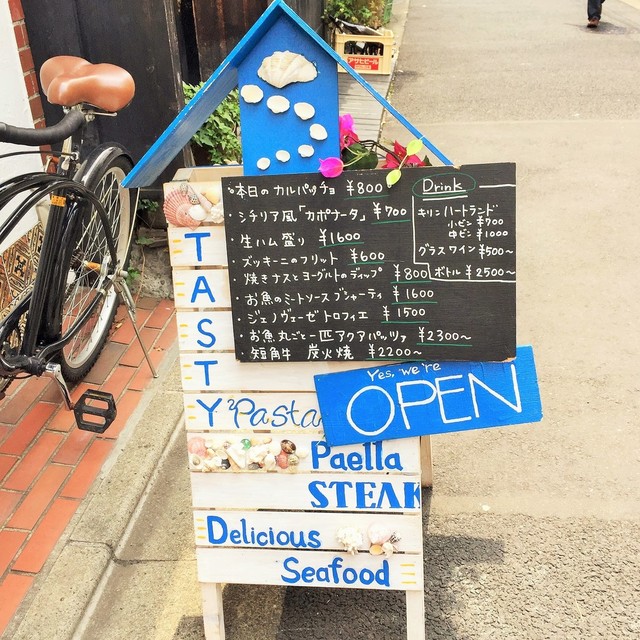 アサヒビール
・本日のカルパッチョ ¥800
・シチリア風「カポナータ」 ¥700
・生ハム盛り ¥1600
・ズッキーニのフリット ¥600
・焼きナスとヨーグルトのディップ ¥800
・お魚のミートソースブシャーティ ¥1600
・ジェノヴェーゼトロフィエ ¥1500
・お魚丸ごと一匹アクアパッツァ ¥2300~
・短角牛 炭火焼 ¥2200~
Drink
キリンハートランド
小ビン ¥700
中ビン ¥1000
グラスワイン ¥500~
ボトル ¥2500~
TASTY
Yes, we're
OPEN
Pasta
Paella
STEAK
Delicious
Seafood